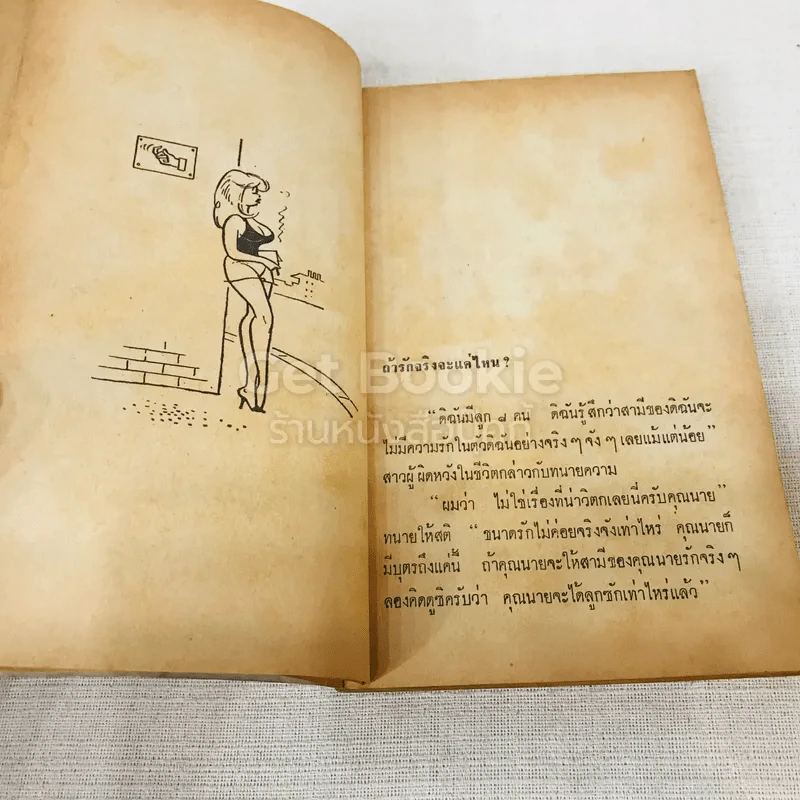 ถ้ารักจริงจะแค่ไหน ?
“ดิฉันมีลูก ๘ คน ดิฉันรู้สึกว่าสามีของดิฉันจะ
ไม่มีความรักในตัวดิฉันอย่างจริง ๆ จัง ๆ เลยแม้แต่น้อย”
สาวผู้ผิดหวังในชีวิตกล่าวกับทนายความ
“ผมว่า ไม่ใช่เรื่องที่น่าวิตกเลยนี่ครับคุณนาย”
ทนายให้สติ “ขนาดรักไม่ค่อยจริงจังเท่าไหร่ คุณนายก็
มีบุตรถึงแค่นี้ ถ้าคุณนายจะให้สามีของคุณนายรักจริง ๆ
ลองคิดดูซิครับว่า คุณนายจะได้ลูกซักเท่าไหร่แล้ว”
Get Bookie
ร้านหนังสือเก็ตบุ๊คกี้